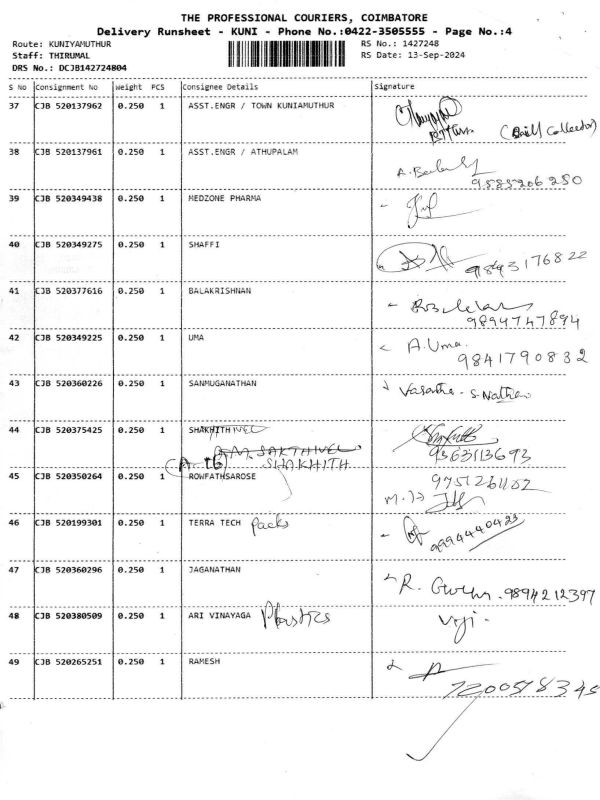 THE PROFESSIONAL COURIERS, COIMBATORE
Delivery Runsheet - KUNI - Phone No.:0422-3505555 - Page No.:4
Route: KUNIYAMUTHUR RS No.: 1427248
Staff: THIRUMAL RS Date: 13-Sep-2024
DRS No.: DCJB142724804
S No Consignment No Weight PCS Consignee Details Signature
37 CJB 520137962 0.250 1 ASST.ENGR / TOWN KUNIAMUTHUR
(Bill Collector)
38 CJB 520137961 0.250 1 ASST.ENGR / ATHUPALAM
9585206250
39 CJB 520349438 0.250 1 MEDZONE PHARMA
40 CJB 520349275 0.250 1 SHAFFI
9893176822
41 CJB 520377616 0.250 1 BALAKRISHNAN
9894747894
42 CJB 520349225 0.250 1 UMA A. Uma.
9841790832
43 CJB 520360226 0.250 1 SANMUGANATHAN Vasantha - S. Nathan
44 CJB 520375425 0.250 1 SHAKHITHIVEL
A.M. SAKTHIVEL 9363113693
SHAKHITH
45 CJB 520350264 0.250 1 ROWFATHSAROSE
46 CJB 520199301 0.250 1 TERRA TECH Packs 9994440423
47 CJB 520360296 0.250 1 JAGANATHAN R. 9894212397
48 CJB 520380509 0.250 1 ARI VINAYAGA Plastics Viji.
49 CJB 520265251 0.250 1 RAMESH
7200518345